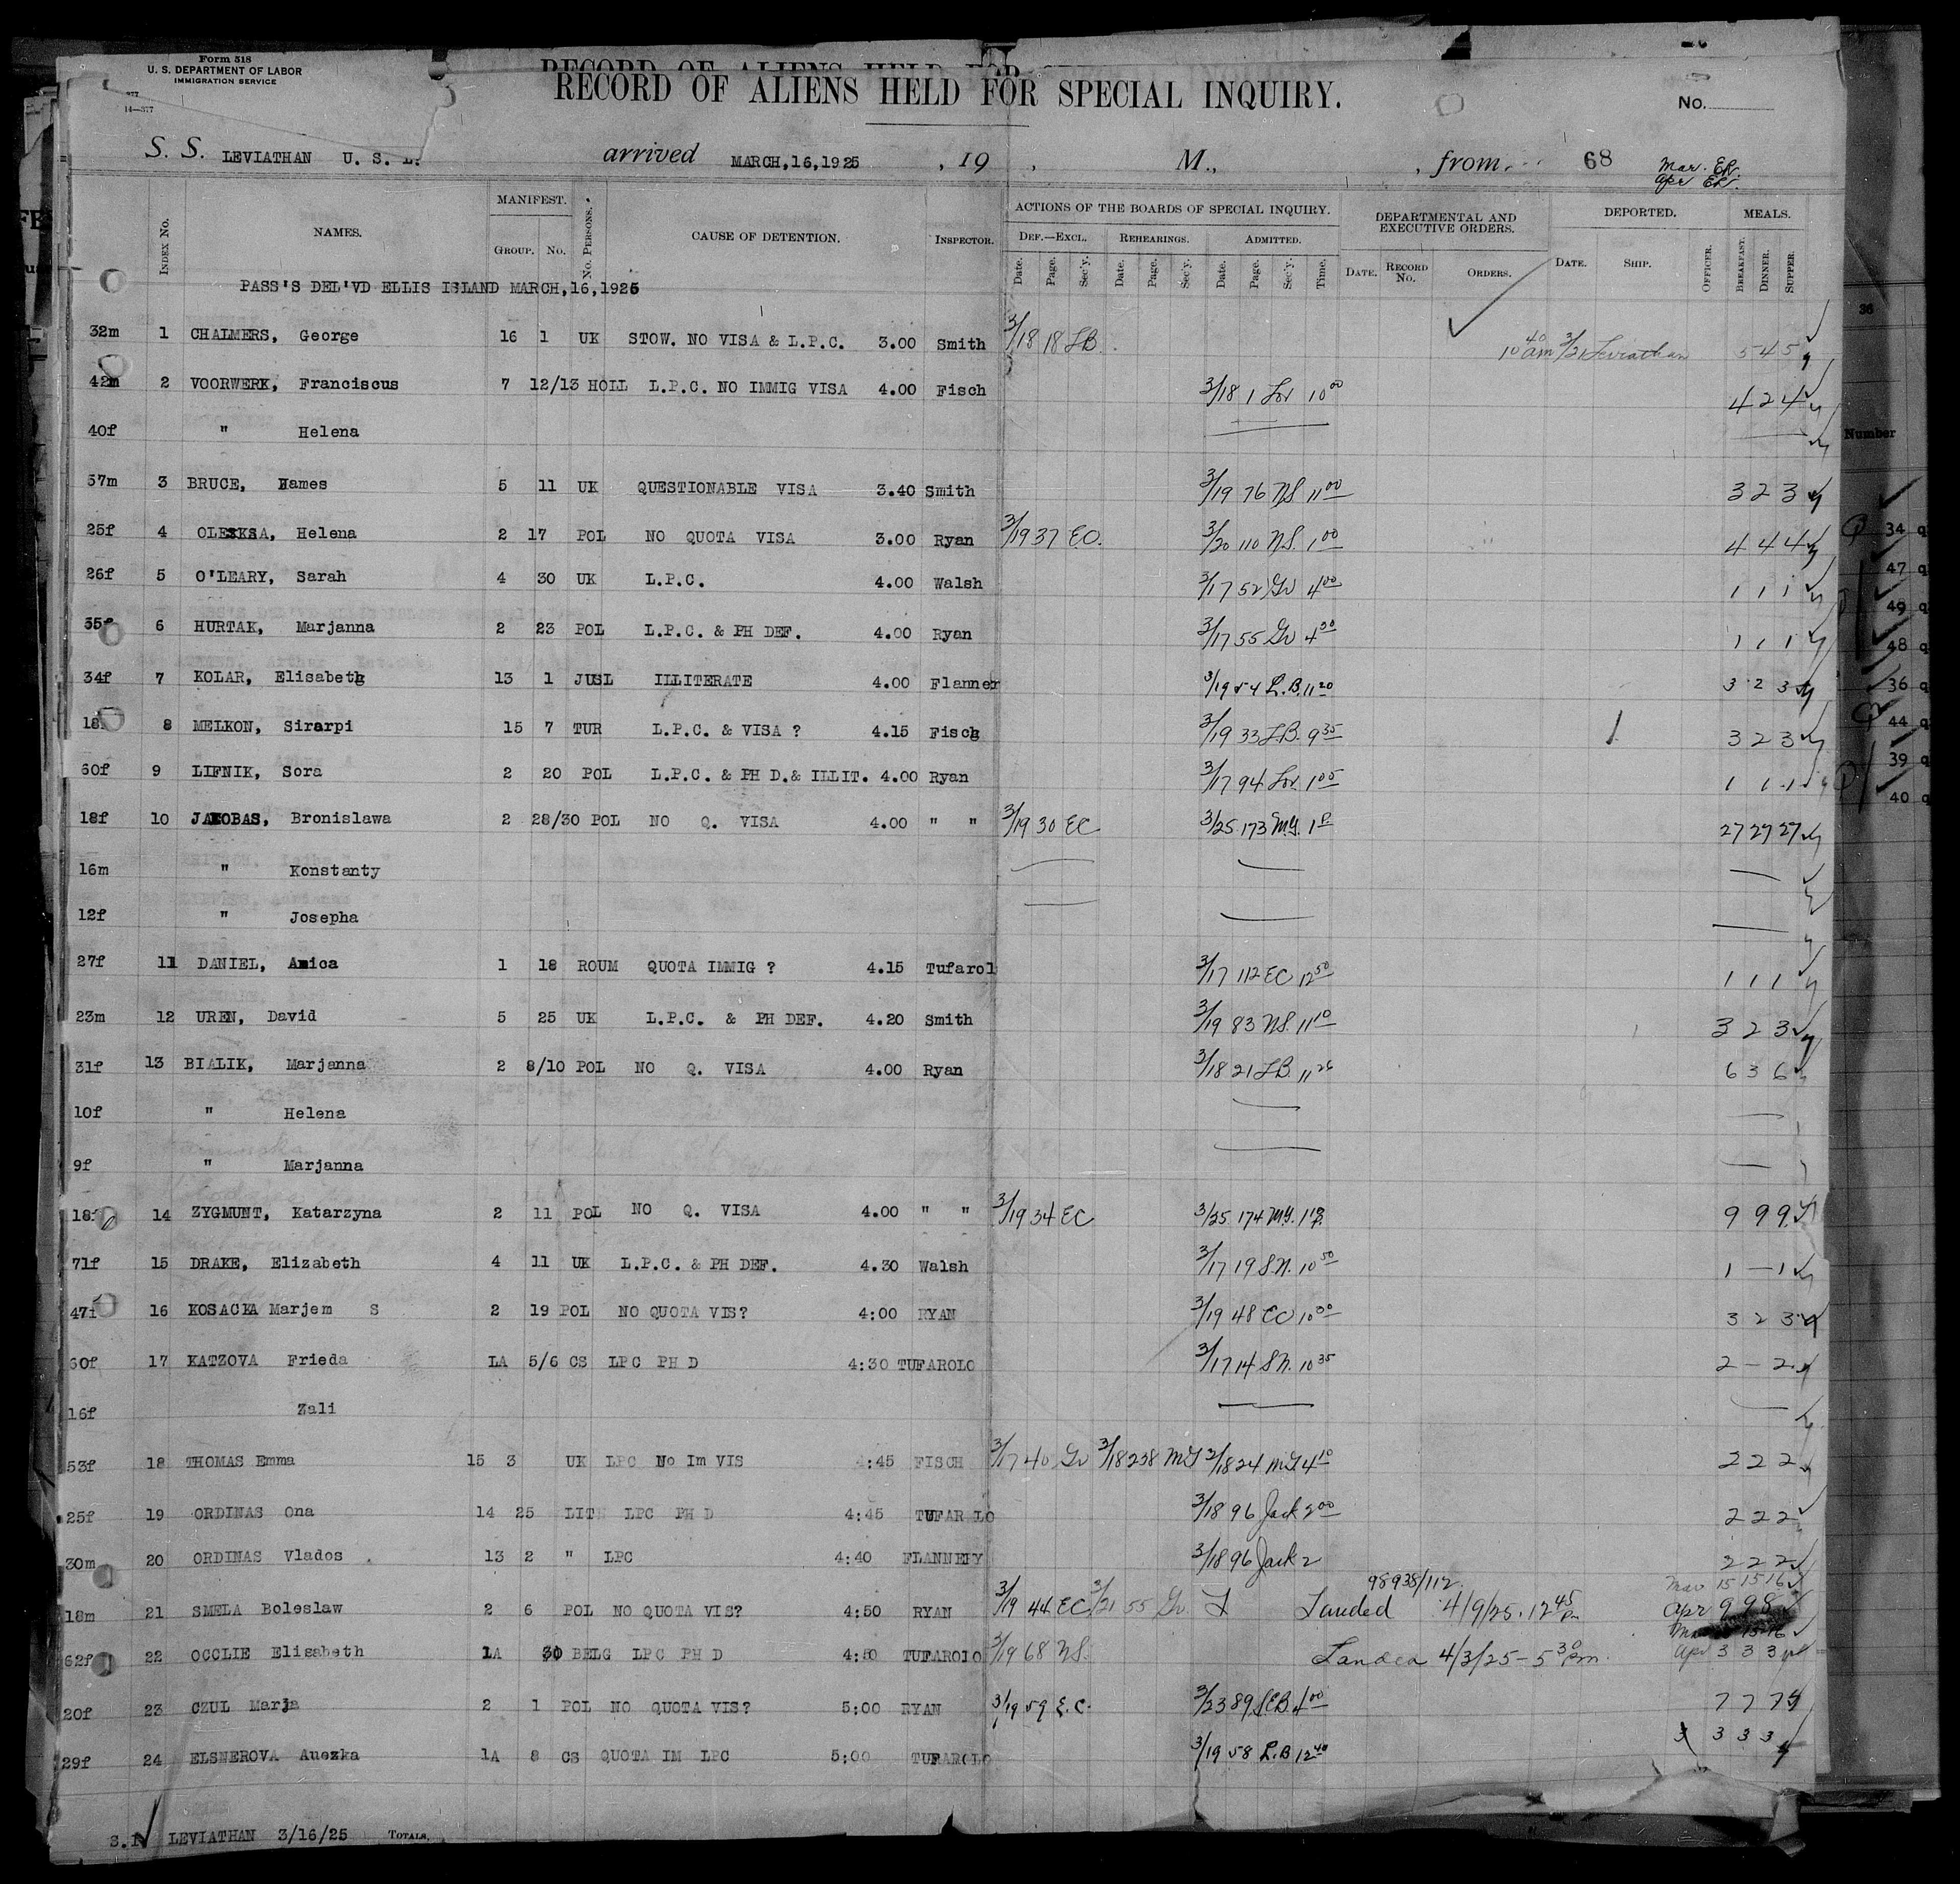 Form 518
U. S. DEPARTMENT OF LABOR
IMMIGRATION SERVICE
14—377
RECORD OF ALIENS HELD FOR
RECORD OF ALIENS HELD FOR SPECIAL INQUIRY.
No.
S. S. LEVIATHAN U. S. L. arrived MARCH,16,1925 , 19 , M., , from 68
Mar. ER.
Apr ER.
Index No. NAMES. MANIFEST. Group. No. No. Persons. CAUSE OF DETENTION. Inspector. ACTIONS OF THE BOARDS OF SPECIAL INQUIRY. Def.—Excl. Date. Page. Sec'y. Rehearings. Date. Page. Sec'y. Admitted. Date. Page. Sec'y. Time. DEPARTMENTAL AND EXECUTIVE ORDERS. Date. Record No. Orders. DEPORTED. Date. Ship. Officer. MEALS. Breakfast. Dinner. Supper.
PASS'S DEL'VD ELLIS ISLAND MARCH,16,1925
32m 1 CHALMERS, George 16 1 UK STOW. NO VISA & L.P.C. 3.00 Smith 3/18 18 LB. 10 40 am 3/21 Leviathan 5 4 5
42m 2 VOORWERK, Franciscus 7 12/13 HOLL L.P.C. NO IMMIG VISA 4.00 Fisch 3/18 1 Lor 10 00 4 2 4
40f " Helena
57m 3 BRUCE, James 5 11 UK QUESTIONABLE VISA 3.40 Smith 3/19 76 NS. 11 00 3 2 3
25f 4 OLEKSA, Helena 2 17 POL NO QUOTA VISA 3.00 Ryan 3/19 37 EO. 3/20 110 NS. 1 00 4 4 4
26f 5 O'LEARY, Sarah 4 30 UK L.P.C. 4.00 Walsh 3/17 52 Gv 4 00 1 1 1
35f 6 HURTAK, Marjanna 2 23 POL L.P.C. & PH DEF. 4.00 Ryan 3/17 55 Gv 4 30 1 1 1
34f 7 KOLAR, Elisabeth 13 1 JUSL ILLITERATE 4.00 Flanner 3/19 54 L.B. 11 20 3 2 3
18 8 MELKON, Sirarpi 15 7 TUR L.P.C. & VISA ? 4.15 Fisch 3/19 33 LB. 9 35 3 2 3
60f 9 LIFNIK, Sora 2 20 POL L.P.C. & PH D.& ILLIT. 4.00 Ryan 3/17 94 Lor. 1 05 1 1 1
18f 10 JAKOBAS, Bronislawa 2 28/30 POL NO Q. VISA 4.00 " " 3/19 30 EC 3/25 173 My. 1 P 27 27 27
16m " Konstanty
12f " Josepha
27f 11 DANIEL, Amica 1 18 ROUM QUOTA IMMIG ? 4.15 Tufarol 3/17 112 EC 12 50 1 1 1
23m 12 UREN, David 5 25 UK L.P.C. & PH DEF. 4.20 Smith 3/19 83 NS. 11 10 3 2 3
31f 13 BIALIK, Marjanna 2 8/10 POL NO Q. VISA 4.00 Ryan 3/18 21 LB. 11 26 6 3 6
10f " Helena
9f " Marjanna
18f 14 ZYGMUNT, Katarzyna 2 11 POL NO Q. VISA 4.00 " " 3/19 34 EC 3/25 174 My. 1 10 P. 9 9 9
71f 15 DRAKE, Elizabeth 4 11 UK L.P.C. & PH DEF. 4.30 Walsh 3/17 19 S.N. 10 50 1 — 1
47f 16 KOSACKA Marjem S 2 19 POL NO QUOTA VIS? 4:00 RYAN 3/19 48 EO 10 30 3 2 3
60f 17 KATZOVA Frieda LA 5/6 CS LPC PH D 4:30 TUFAROLO 3/17 14 S.N. 10 35 2 — 2
16f Zali
53f 18 THOMAS Emma 15 3 UK LPC No Im VIS 4:45 FISCH 3/17 40 Gv 3/18 238 My 3/18 24 My 4 10 2 2 2
25f 19 ORDINAS Ona 14 25 LITH LPC PH D 4:45 TUFAROLO 3/18 96 Jack 2 00 2 2 2
30m 20 ORDINAS Vlados 13 2 " LPC 4:40 FLANNERY 3/18 96 Jack 2 2 2 2
98938/112 Mar 15 15 16
18m 21 SMELA Boleslaw 2 6 POL NO QUOTA VIS? 4:50 RYAN 3/19 44 EC 3/21 55 Gv. Landed 4/9/25. 12 45 Pm Apr 9 9 8
62f 22 OCCLIE Elisabeth 1A 30 BELG LPC PH D 4:50 TUFAROLO 3/19 68 NS. Landed 4/3/25 — 5 30 Pm. Apr 3 3 3
20f 23 CZUL Marja 2 1 POL NO QUOTA VIS? 5:00 RYAN 3/19 59 E.C. 3/23 89 S.C.B. 4 00 7 7 7
29f 24 ELSNEROVA Auezka 1A 8 CS QUOTA IM LPC 5:00 TUFAROLO 3/19 58 L.B 12 40 3 3 3
S.I LEVIATHAN 3/16/25 Totals.
36
Number
34 q
47 q
49 q
48 q
36 q
44 q
39 q
40 q